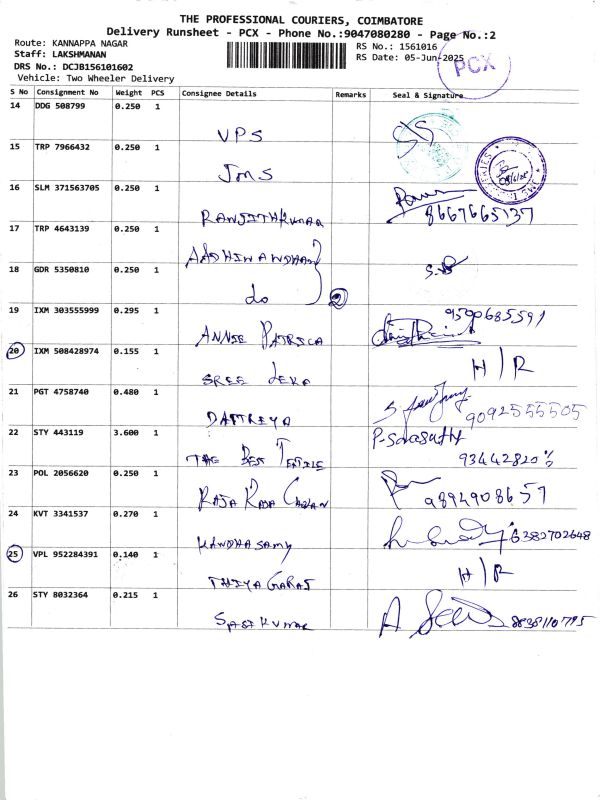 THE PROFESSIONAL COURIERS, COIMBATORE
Delivery Runsheet - PCX - Phone No.:9047080280 - Page No.:2
Route: KANNAPPA NAGAR
RS No.: 1561016
Staff: LAKSHMANAN
RS Date: 05-Jun-2025
PCX
DRS No.: DCJB156101602
Vehicle: Two Wheeler Delivery
S No Consignment No Weight PCS Consignee Details Remarks Seal & Signature
14 DDG 508799 0.250 1
VPS
15 TRP 7966432 0.250 1
JMS
16 SLM 371563705 0.250 1
RANJITHKUMAR 8667665137
17 TRP 4643139 0.250 1
AADHIWANDHAN
18 GDR 5350810 0.250 1
do 2
19 IXM 303555999 0.295 1
ANNIE PATRICA 9590685591
20 IXM 508428974 0.155 1
SREE H/R
21 PGT 4758740 0.480 1
DATTREYA 9092555505
22 STY 443119 3.600 1
THE BEST TEXTILE P-Sarasathy
23 POL 2056620 0.250 1
RAJA RAJA CHOLAN 9894908657
24 KVT 3341537 0.270 1
KANDHASAMY 6382702648
25 VPL 952284391 0.140 1
THIYAGARAJ H/R
26 STY 8032364 0.215 1
SASIKUMAR